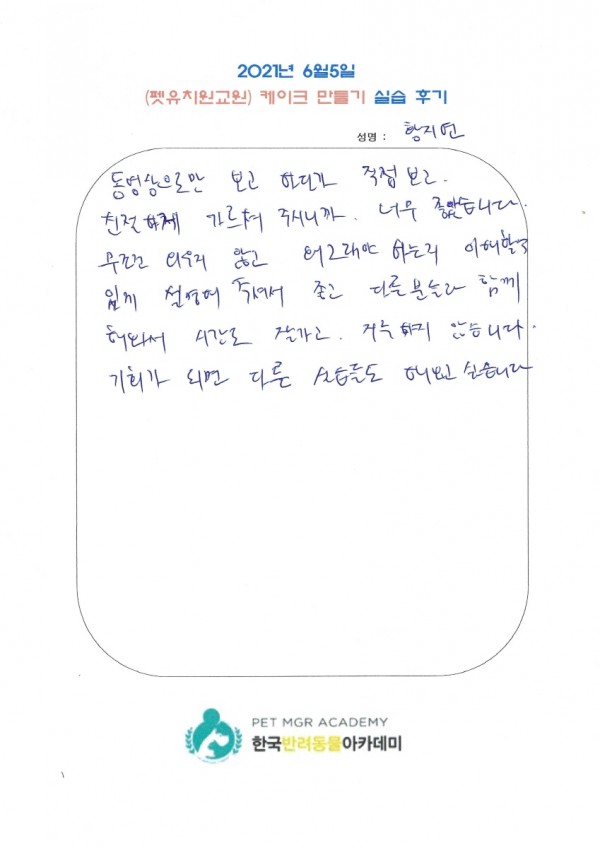 2021년 6월5일
(펫유치원교원) 케이크 만들기 실습 후기
성명 : 황지연
동영상으로만 보고 하다가 직접 보고.
친절하게 가르쳐 주시니까. 너무 좋았습니다.
무조건 외우지 않고 왜 그래야 하는지 이해할 수
있게 설명해 주셔서 좋고 다른분들과 함께
해와서 시간도 잘가고. 지루하지 않습니다.
기회가 되면 다른 실습들도 해보고 싶습니다
PET MGR ACADEMY
한국반려동물아카데미